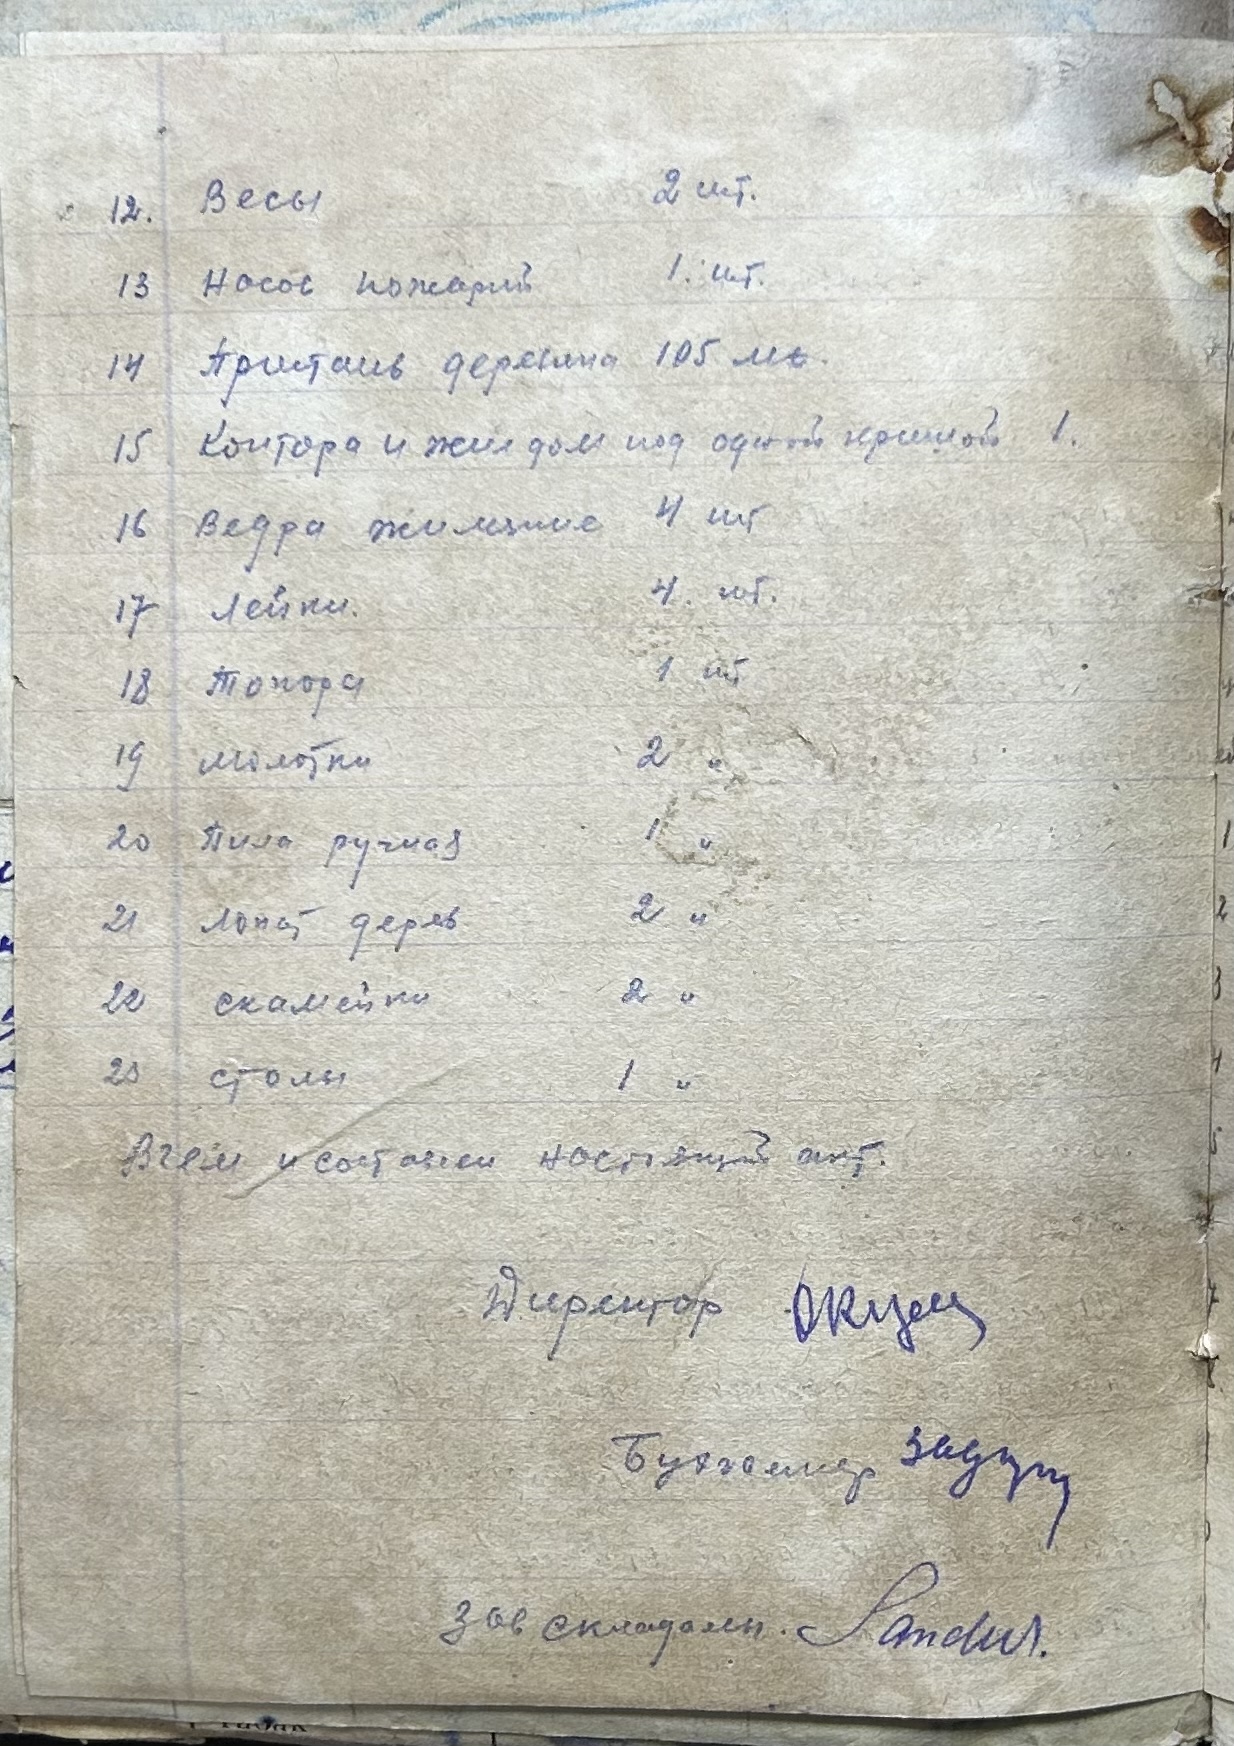 12. Весы 2 шт.
13 Насос пожарный 1. шт.
14 Пристань деревяна 105 мв.
15 Контора и жил дом под одной крышой 1.
16 Ведра 4 шт
17 Лейки. 4. шт.
18 Топора 1 шт
19 молотки 2 "
20 Пила ручная 1 "
21 лопат дерев 2 "
22 скамейки 2 "
23 столы 1 "
В чем и составлен настоящий акт.
Директор
Бухгалтер
Зав складами.